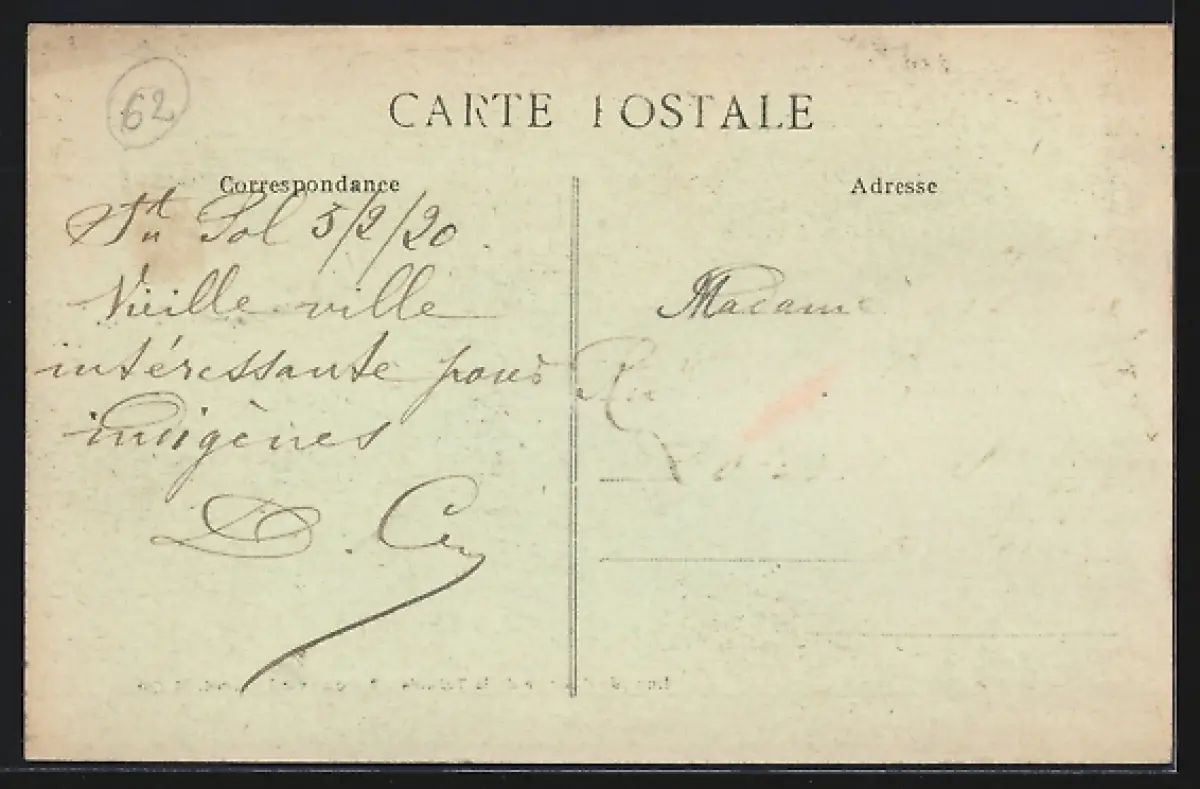 62
CARTE POSTALE
Correspondance
Adresse
St Pol 5/2/20
Vieille ville
intéressante pour
indigènes
D.
Madame